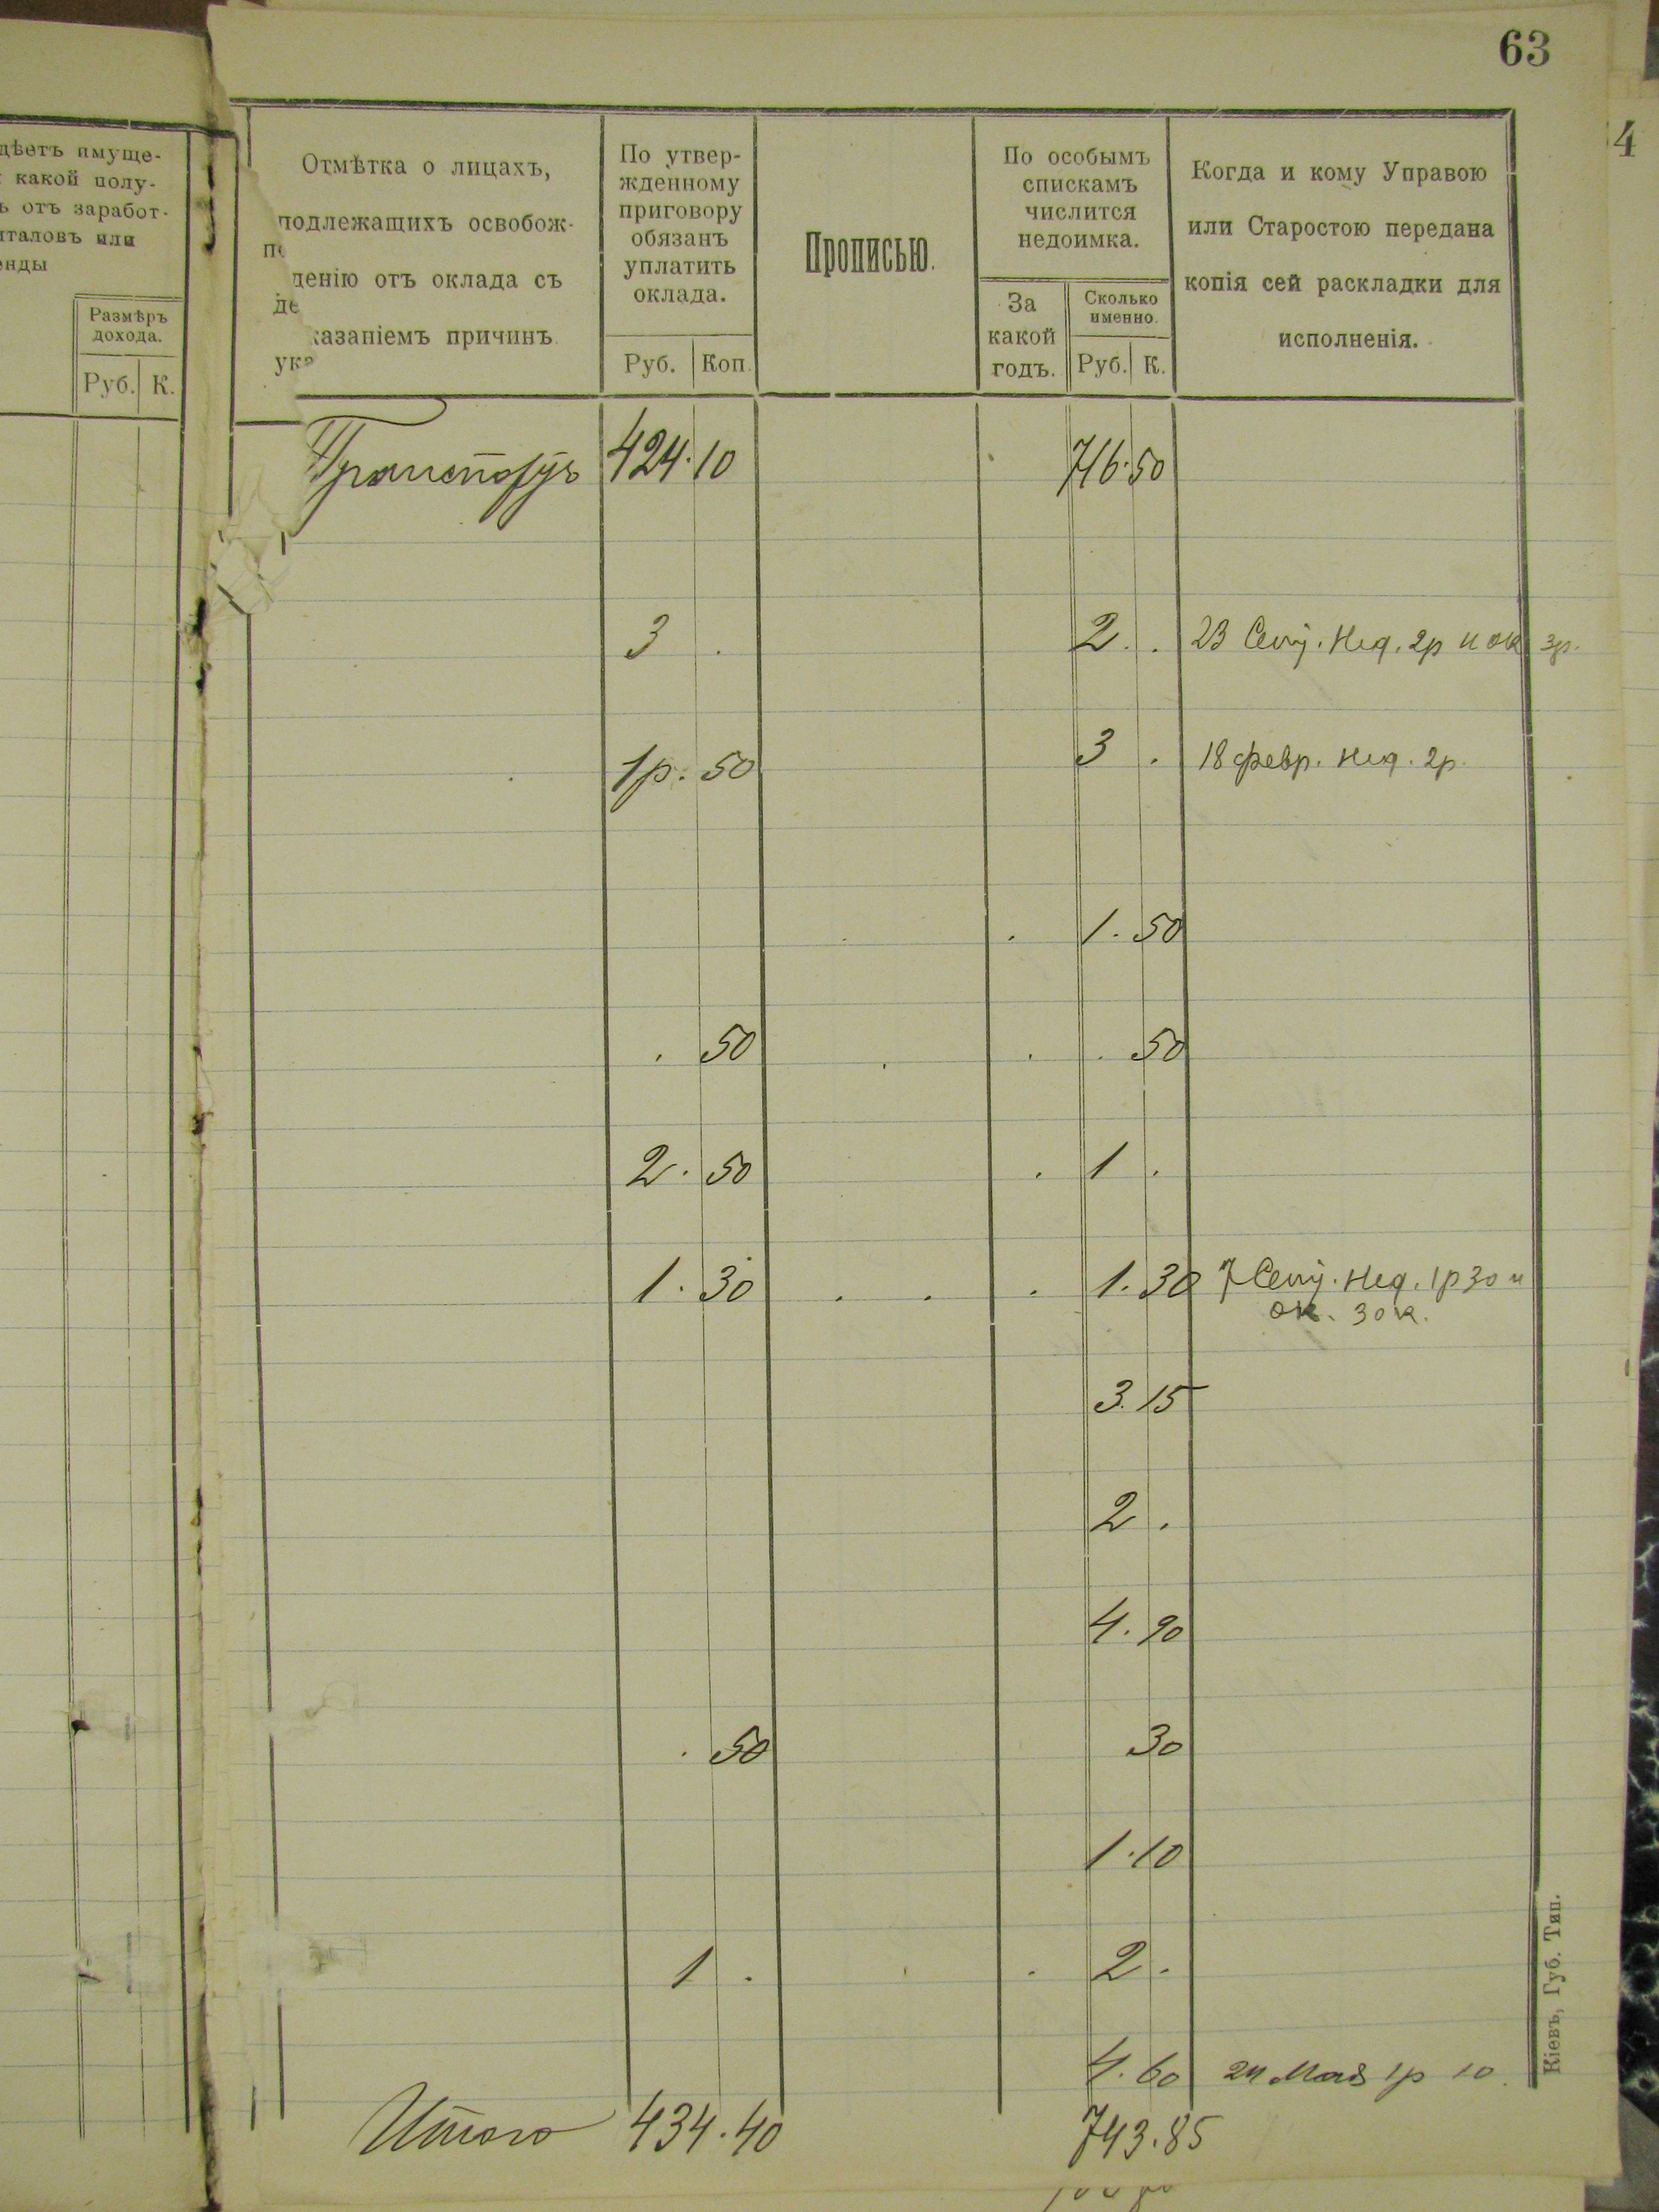 63
4
дѣетъ имуще-
какой полу-
ь отъ заработ-
италовъ или
енды
Размѣръ
дохода.
Руб. К.
Отмѣтка о лицахъ,
подлежащихъ освобож-
денію отъ оклада съ
казаніемъ причинъ.
По утвер-
жденному
приговору
обязанъ
уплатить
оклада.
Руб. Коп.
Прописью.
По особымъ
спискамъ
числится
недоимка.
За
какой
годъ.
Сколько
именно.
Руб. К.
Когда и кому Управою
или Старостою передана
копія сей раскладки для
исполненія.
Транспортъ 424. 10 716. 50
3 . 2. . 23 Сент. Нед. 2р и ок 3р.
1р. 50 3 . 18 февр. Нед. 2р.
1. 50
. 50 . 50
2. 50 1 .
1. 30 1. 30 7 Сент. Нед. 1р 30 и
ок. 30к.
3. 15
2 .
4. 90
. 50 30
1. 10
1 . 2 .
4. 60 24 Мая 1р 10
Итого 434. 40 743. 85
Кіевъ, Губ. Тип.